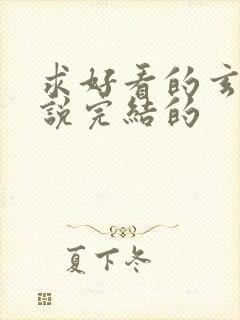 求好看的玄
說完結的
夏下冬